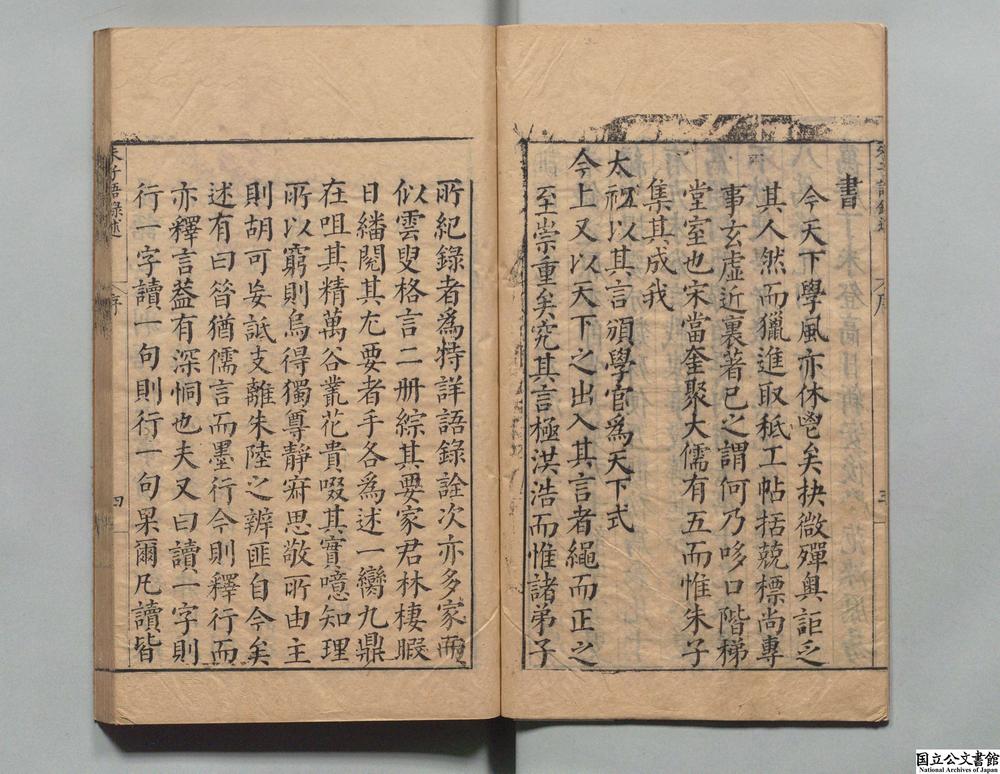 書
今天下學風亦休鬯矣抉微殫奧詎乏
其人然而獵進取秪工帖括兢標尚專
事玄虛近裏著已之謂何乃哆口階梯
堂室也宋當奎聚大儒有五而惟朱子
集其成我
太祖以其言頒學官為天下式
今上又以天下之出入其言者繩而正之
至崇重矣究其言極洪浩而惟諸弟子
三
所紀錄者為特詳語錄詮次亦多家而
似雲叟格言二册綜其要家君林棲暇
日繙閱其尤要者手各為述一臠九鼎
在咀其精萬谷叢花貴啜其實噫知理
所以窮則烏得獨尊靜㝛思敬所由主
則胡可妄詆支離朱陸之辨匪自今矣
述有曰昝猶儒言而墨行今則釋行而
亦釋言葢有深恫也夫又曰讀一字則
行一字讀一句則行一句果爾凡讀皆
朱子語錄述
序
四
国立公文書館
National Archives of Japan